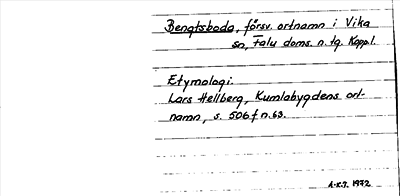 Bengtsboda, försv. ortnamn i Vika
sn, Falu doms. n. tg. Koppl.
Etymologi:
Lars Hellberg, Kumlabygdens ort-
namn, s. 506 f n. 63.
A-K.J. 1972